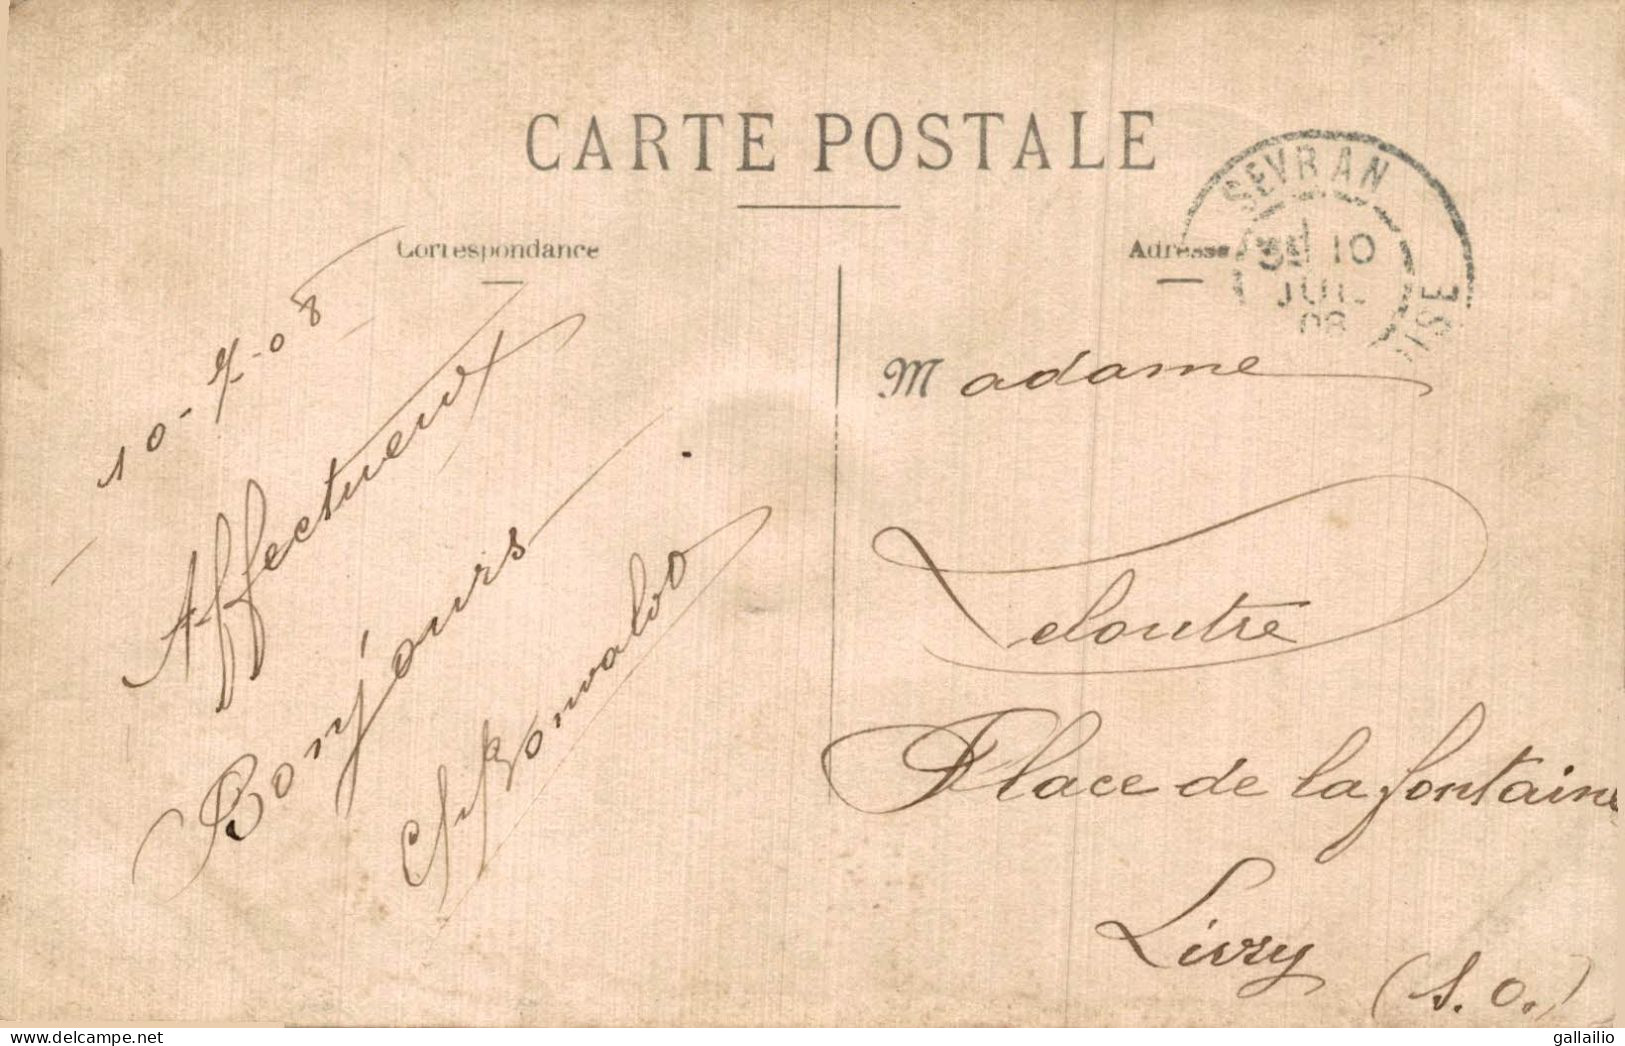 CARTE POSTALE
Correspondance
Adresse
SEVRAN
10
JUIL
08
10-7-08
Affectueux
Bonjours
Madame
Leloutre
Place de la fontaine
Livry
(S.O.)
delcampe.net
gallailio